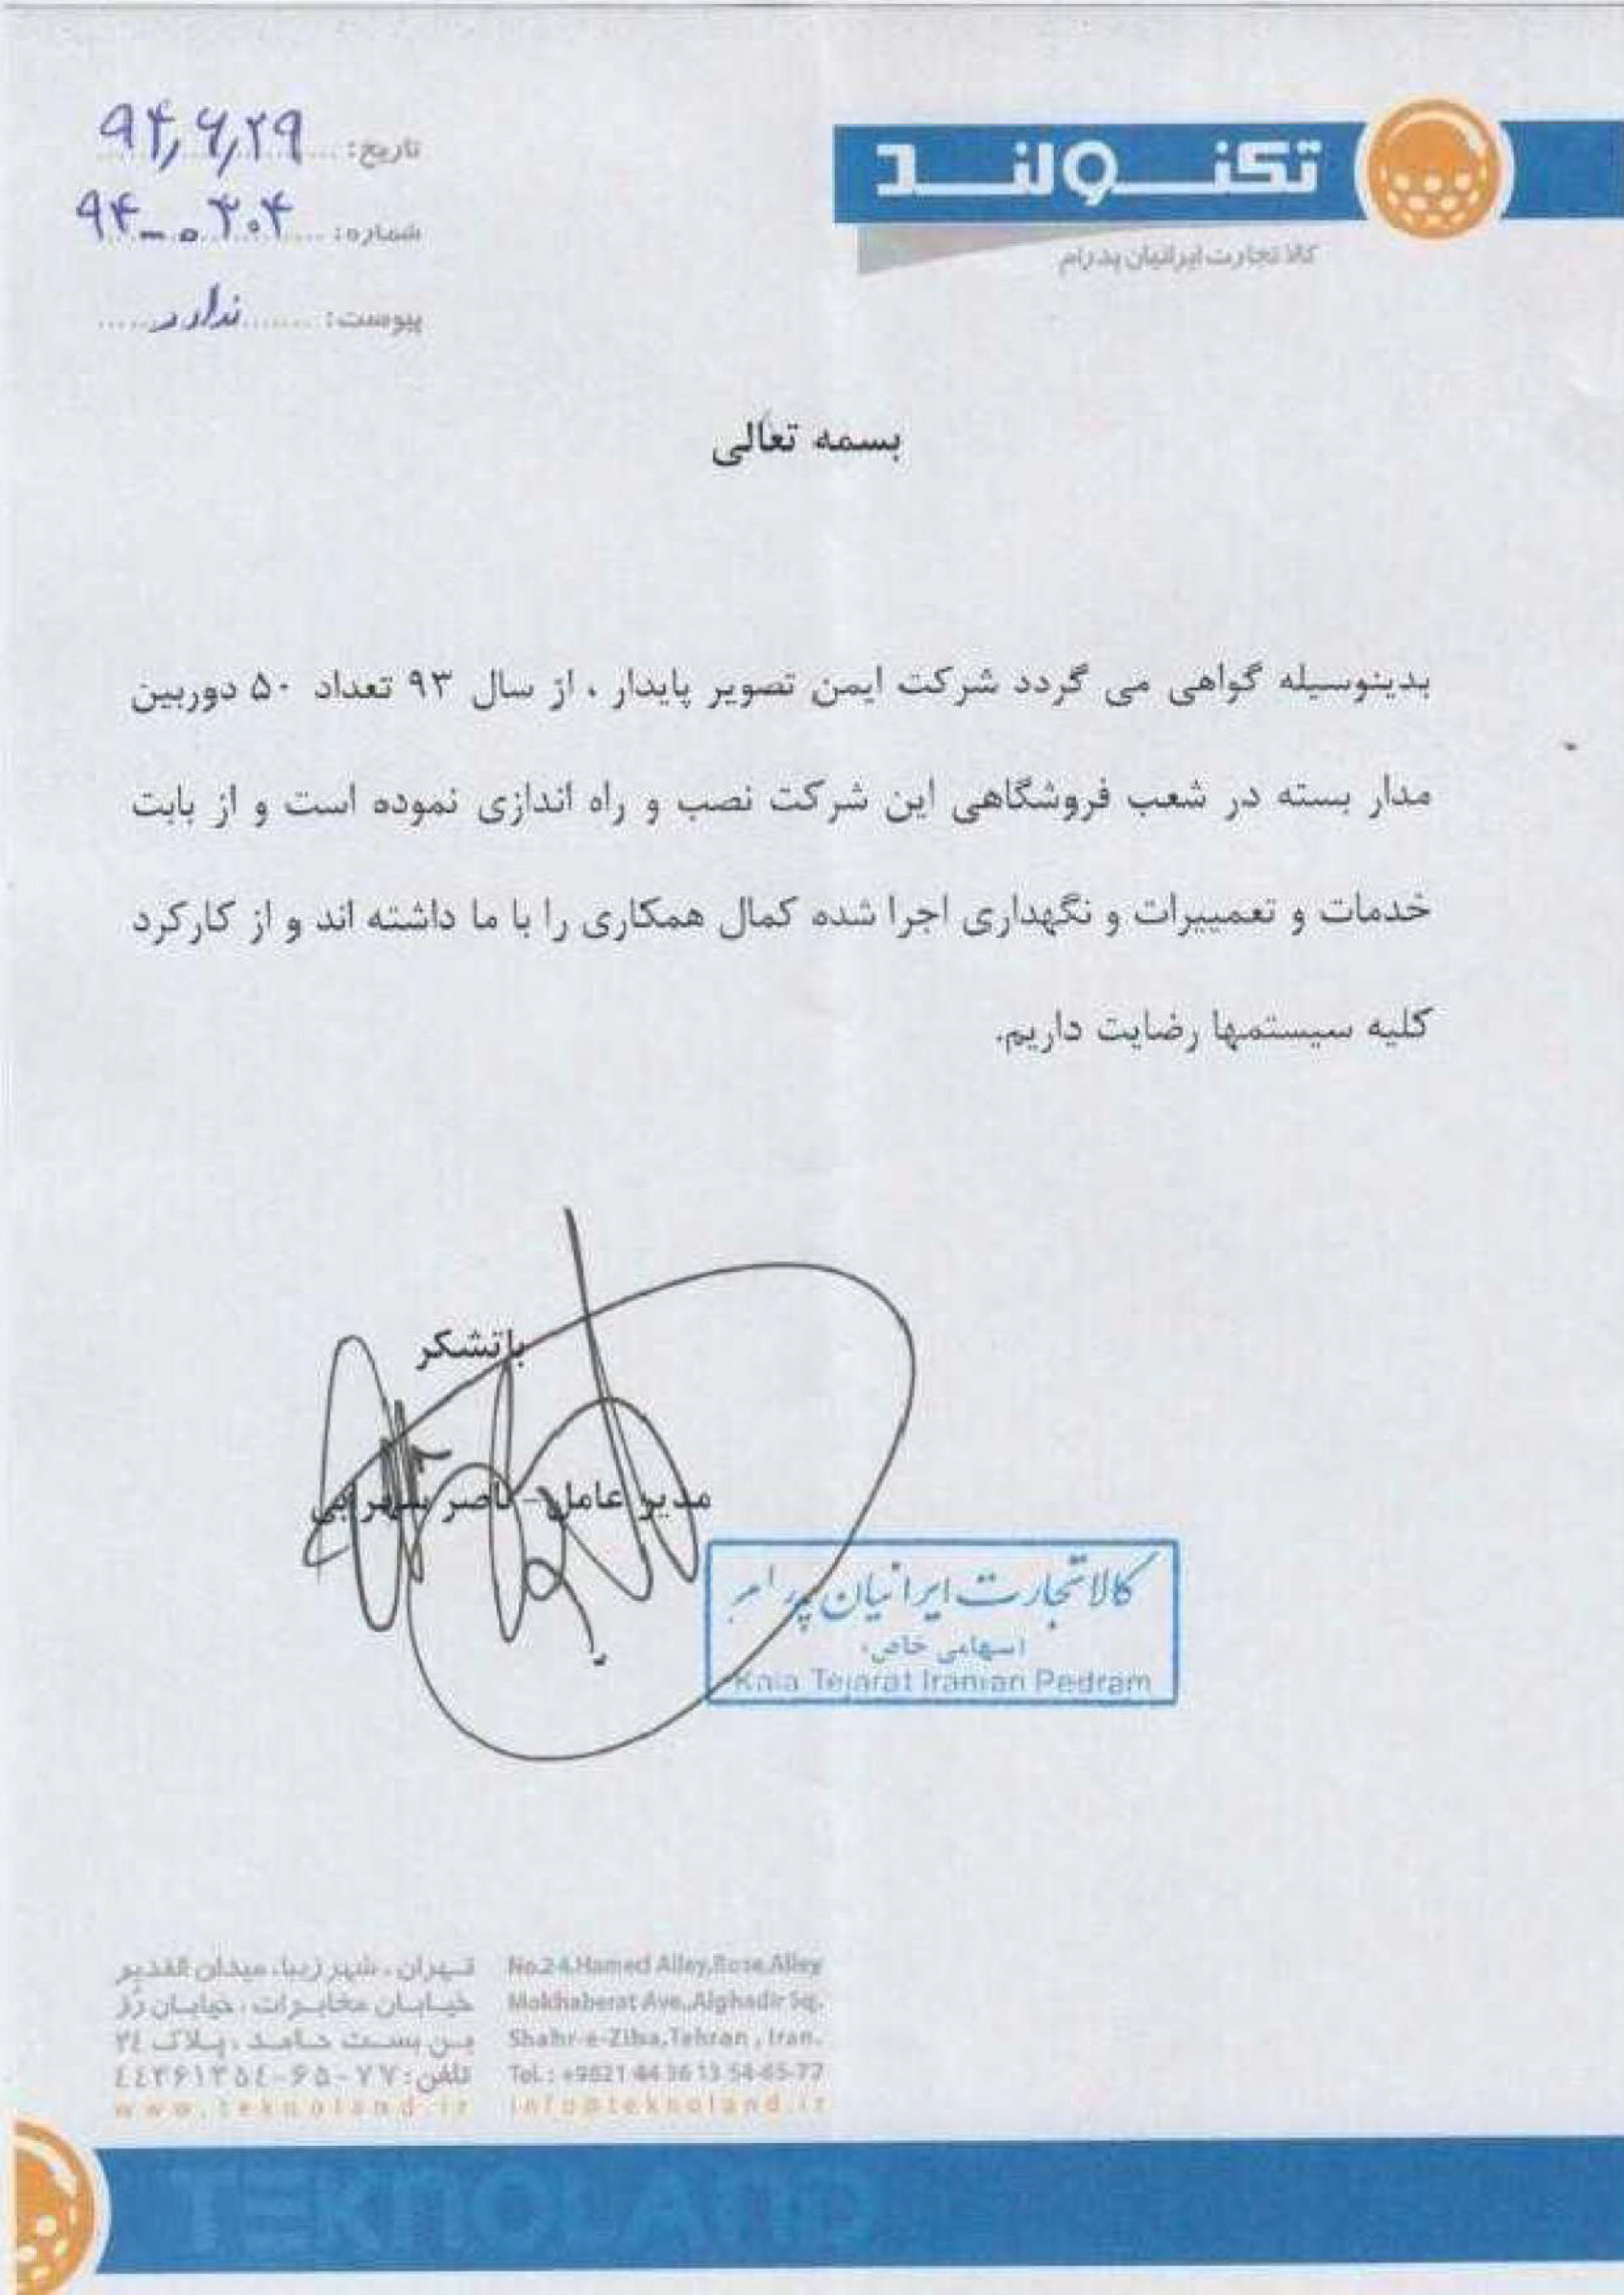 تکنولند
کالا تجارت ایرانیان پدرام
تاریخ: ۹۴,۶,۲۹
شماره: ۹۴-۰۳۰۴
پیوست: ندارد
بسمه تعالی
بدینوسیله گواهی می گردد شرکت ایمن تصویر پایدار ، از سال ۹۳ تعداد ۵۰ دوربین
مدار بسته در شعب فروشگاهی این شرکت نصب و راه اندازی نموده است و از بابت
خدمات و تعمییرات و نگهداری اجرا شده کمال همکاری را با ما داشته اند و از کارکرد
کلیه سیستمها رضایت داریم.
باتشکر
مدیر عامل - ناصر
کالا تجارت ایرانیان پدرام
(سهامی خاص)
Kala Tejarat Iranian Pedram
تهران ، شهر زیبا، میدان الغدیر
خیابان مخابرات ، خیابان رُز
بن بست حامد ، پلاک ٢٤
تلفن: ٧٧-٦٥-٤٤٣٦١٣٥٤
www.teknoland.ir
No.24,Hamed Alley,Rose Alley
Mokhaberat Ave.,Alghadir Sq.
Shahr-e-Ziba,Tehran , Iran.
Tel.: +9821 44 36 13 54-65-77
info@teknoland.ir
TEKNOLAND